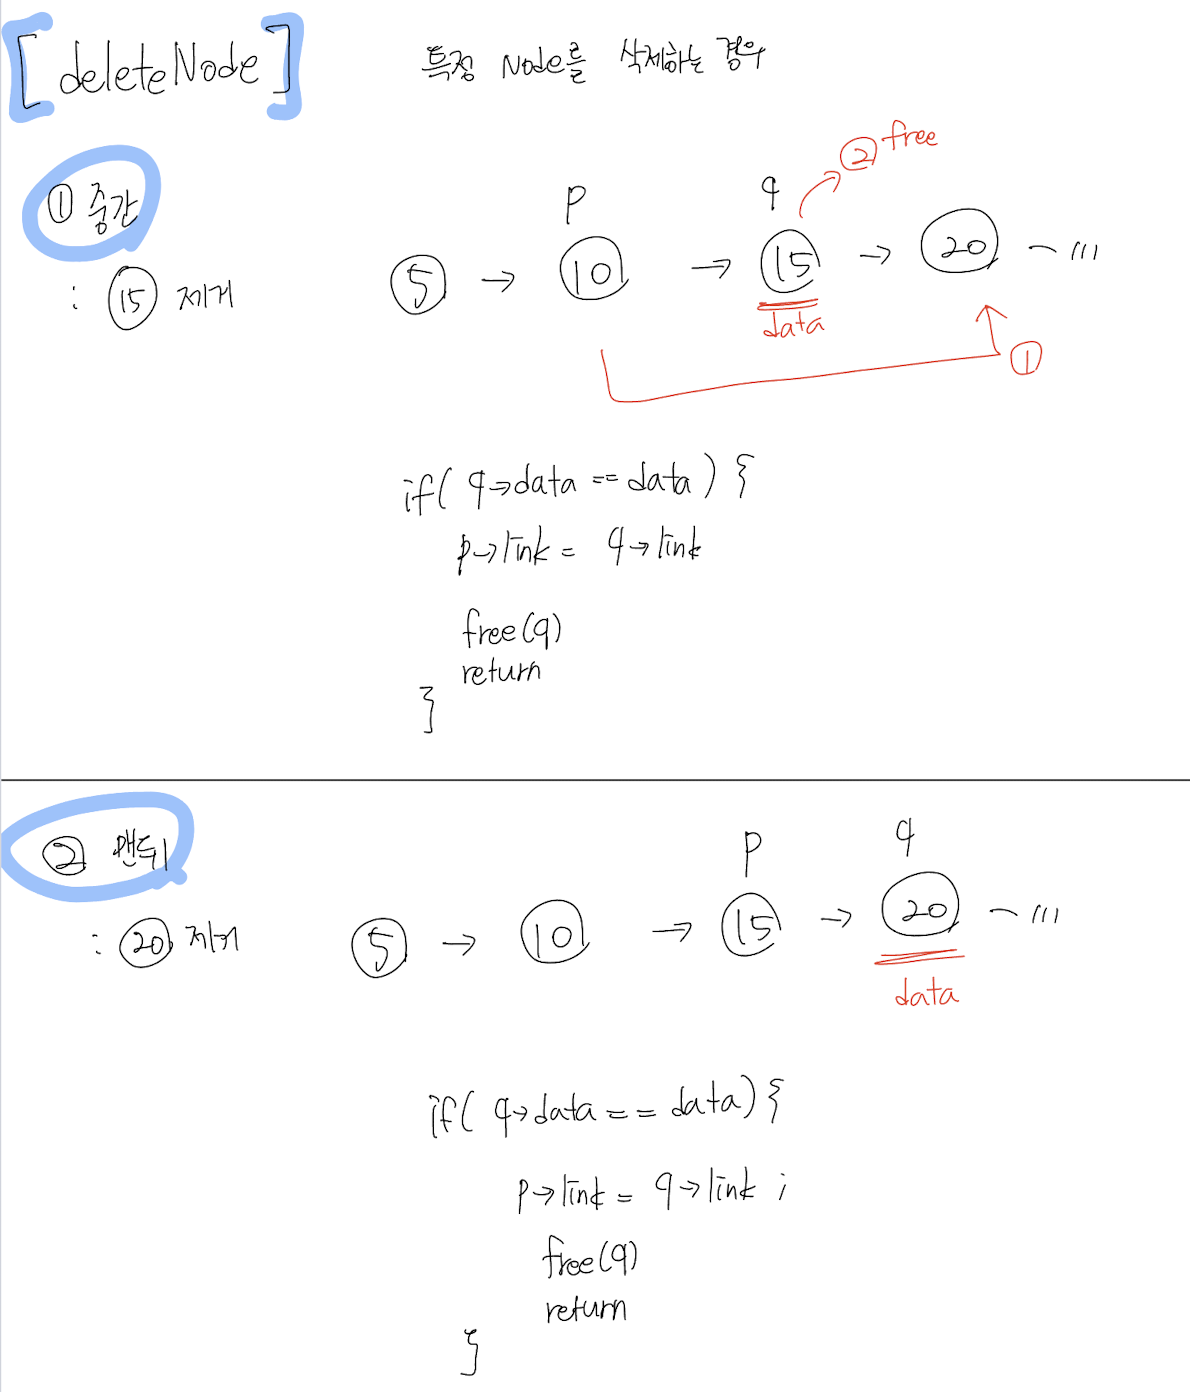 [deleteNode] 특정 Node를 삭제하는 경우
① 중간
: ⑮ 제거
p q ② free
⑤ → ⑩ → ⑮ → ⑳ ~ ///
data
①
if( q→data == data ) {
p→link = q→link
free(q)
return
}
② 맨뒤
: ⑳ 제거
p q
⑤ → ⑩ → ⑮ → ⑳ ~ ///
data
if( q→data == data) {
p→link = q→link ;
free(q)
return
}